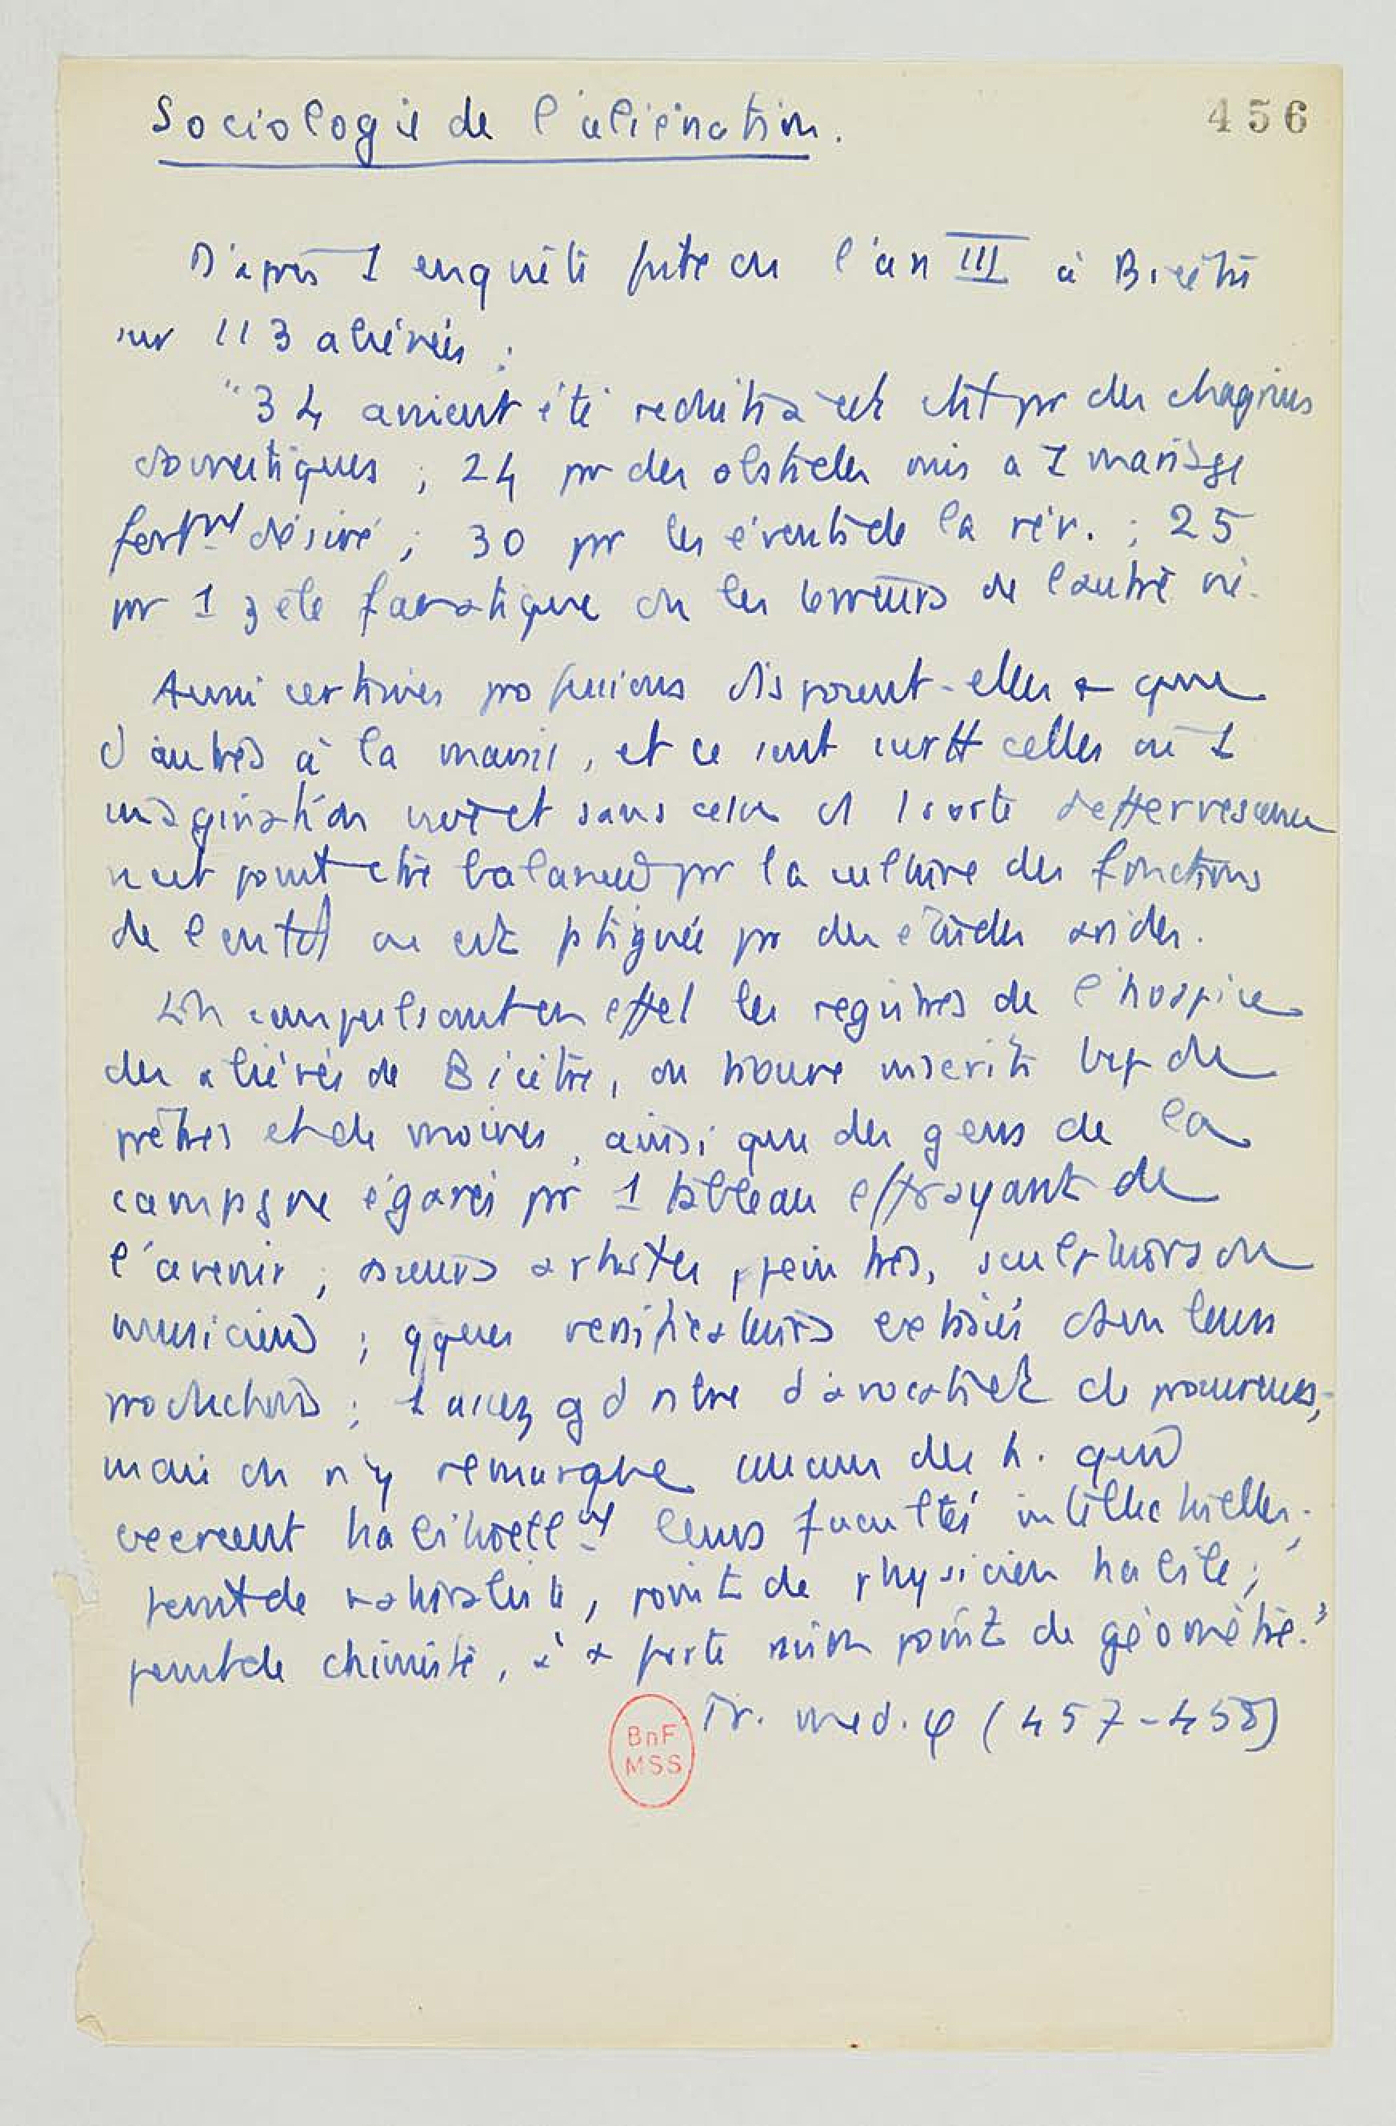 Sociologie de l'aliénation.
456
D'après 1 enquête faite en l'an III à Bicêtre
sur 113 aliénés :
"34 avaient été réduits à cet état pr des chagrins
domestiques ; 24 pr des obstacles mis a 1 mariage
fortmt désiré ; 30 pr les évents de la rév. ; 25
pr 1 zèle fanatique ou les terreurs de l'autre vie.
Aussi certaines professions disposent-elles + que
d'autres à la manie, et ce sont surtt celles où 1
imagination vive et sans cesse ds 1 sorte d'effervescence
n'est point être balancée pr la culture des fonctions
de l'entdt ou est fatiguée pr des études arides.
En compulsant en effet les registres de l'hospice
des aliénés de Bicêtre, on trouve inscrits bcp de
prêtres et de moines, ainsi que des gens de la
campagne égarés pr 1 tableau effrayant de
l'avenir ; artistes, peintres, sculpteurs ou
musiciens ; qques versificateurs extasiés dans leurs
productions ; 1 assez gd nbre d'avocats et de procureurs ;
mais on n'y remarque aucun des h. qui
exercent habituellmt leurs facultés intellectuelles ;
point de naturaliste, point de physicien habile ;
point de chimiste, à + forte raison point de géomètre."
Tr. med. φ (457-458)
BnF
MSS